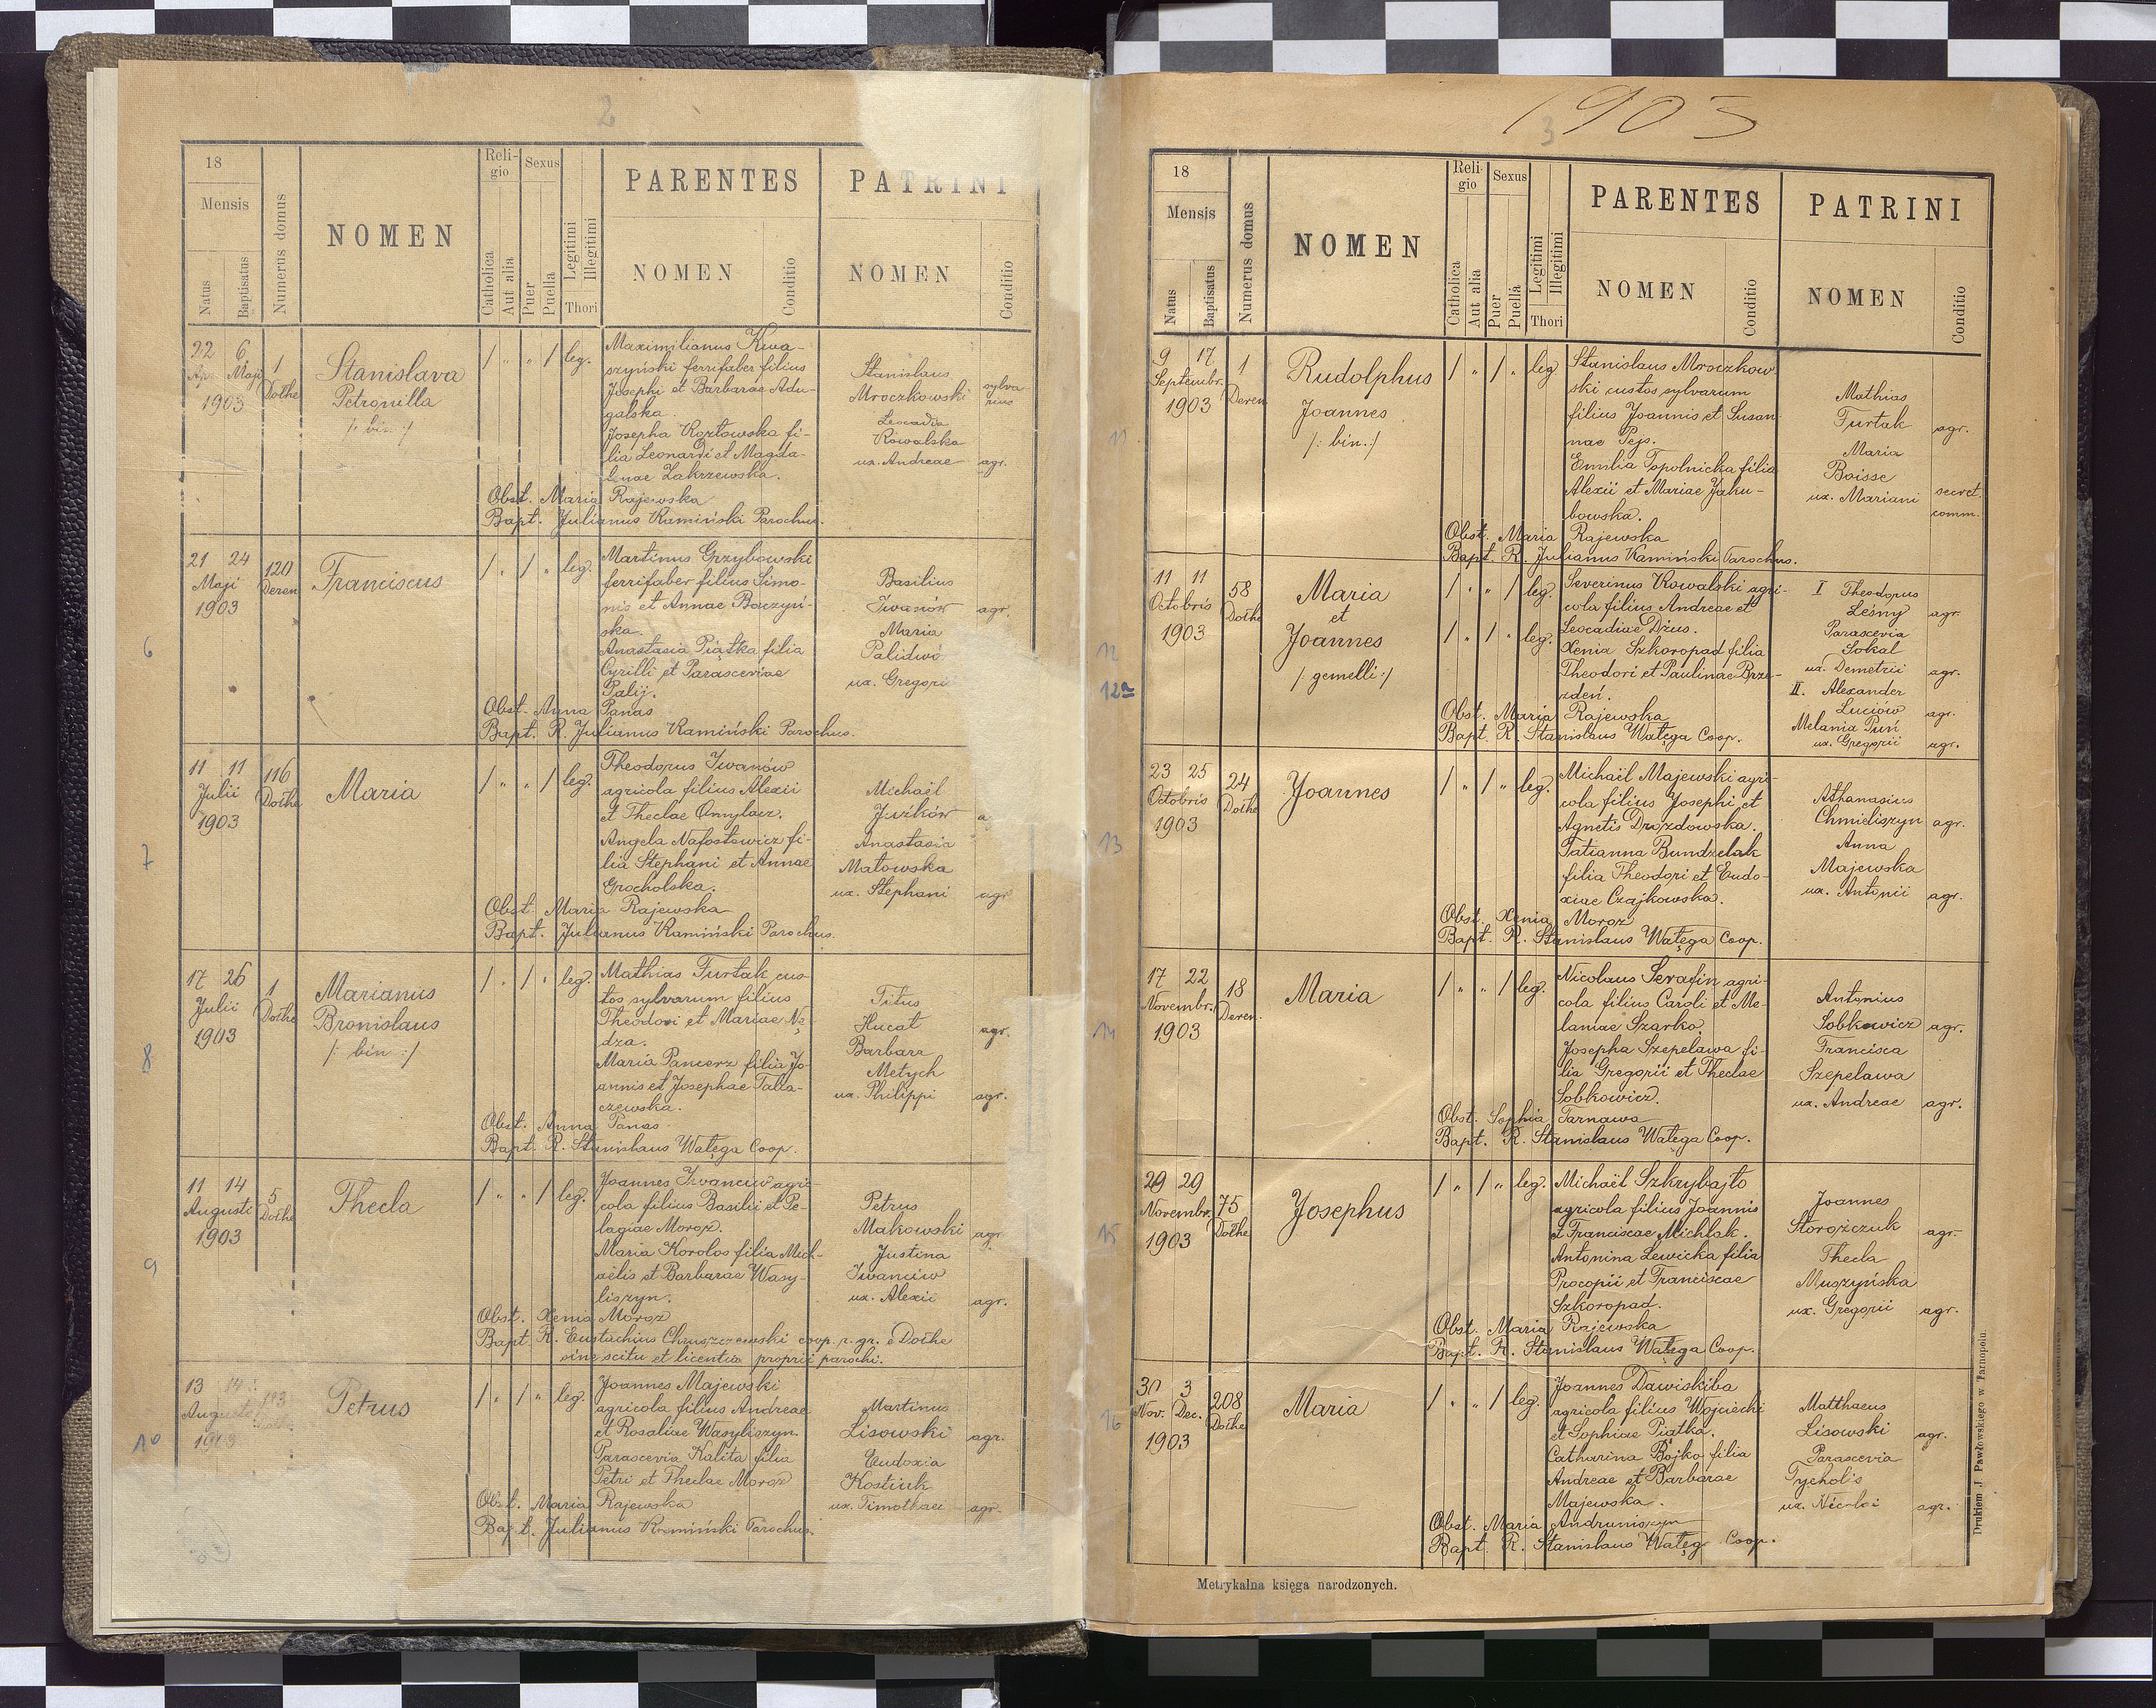 2
18
Mensis
Natus
Baptisatus
Numerus domus
NOMEN
Reli-
gio
Catholica
Aut alia
Sexus
Puer
Puella
Legitimi
Illegitimi
Thori
PARENTES
NOMEN
Conditio
PATRINI
NOMEN
Conditio
22 6
Apr. Maji
1903
1
Dołhe
Stanislava
Petronilla
/: bin :/
/ " " / leg.
Maximilianus Kwa-
szyński ferrifaber filius
Josephi et Barbarae Adu-
galska.
Josepha Kozłowska fi-
lia Leonardi et Magda-
lenae Zakrzewska.
Stanislaus
Mroczkowski sylva
rius
Leocadia
Kowalska
ux. Andreae agr.
Obst. Maria Rajewska
Bapt. Julianus Kamiński Parochus.
6
21 24
Maji
1903
120
Deren
Franciscus
/ " / " leg.
Martinus Grzybowski
ferrifaber filius Simo-
nis et Annae Baczyń-
ska.
Anastasia Piątka filia
Cyrilli et Parasceviae
Palij.
Basilius
Iwanów agr.
Maria
Palidwó
ux. Gregori
Obst. Anna Panas
Bapt. R. Julianus Kamiński Parochus.
7
11 11
Julii
1903
116
Dołhe
Maria
/ " " / leg.
Theodorus Iwanów
agricola filius Alexii
et Theclae Omylacz.
Angela Nafostowicz fi-
lia Stephani et Annae
Grocholska.
Michaël
Juźków a
Anastasia
Matowska
ux. Stephani agr
Obst. Maria Rajewska
Bapt. Julianus Kamiński Parochus.
8
17 26
Julii
1903
1
Dołhe
Marianus
Bronislaus
/: bin :/
/ " / " leg.
Mathias Furtak cus-
tos sylvarum filius
Theodori et Mariae Nę
dza.
Maria Pancerz filia Jo-
annis et Josephae Talla-
czewska.
Titus
Hucat agr.
Barbara
Metych
ux. Philippi agr.
Obst. Anna Panas
Bapt. R. Stanislaus Watęga Coop.
9
11 14
Augusti
1903
5
Dołhe
Thecla
/ " " / leg.
Joannes Iwanciw agri-
cola filius Basilii et Pe-
lagiae Moroz.
Maria Korolos filia Mich-
aëlis et Barbarae Wasy-
liszyn.
Petrus
Makowski agr
Justina
Iwanciw
ux. Alexii agr.
Obst. Xenia Moroz
Bapt. R. Eustachius Chruszczewski coop. r. gr. e Dołhe
sine scitu et licentia proprii parochi.
10
13 14
Augusti
1903
Petrus
/ " / " leg.
Joannes Majewski
agricola filius Andreae
et Rosaliae Wasyliszyn.
Parascevia Kalita filia
Petri et Theclae Moroz
Martinus
Lisowski agr.
Eudoxia
Kostiuk
ux. Timothaei agr.
Obst. Maria Rajewska
Bapt. Julianus Kamiński Parochus.
1903
3
18
Mensis
Natus
Baptisatus
Numerus domus
NOMEN
Reli-
gio
Catholica
Aut alia
Sexus
Puer
Puella
Legitimi
Illegitimi
Thori
PARENTES
NOMEN
Conditio
PATRINI
NOMEN
Conditio
11
9 17
Septembr.
1903
1
Deren
Rudolphus
Joannes
/: bin.:/
/ " / " leg
Stanislaus Mroczkow
ski custos sylvarum
filius Joannis et Susan-
nae Pejs.
Emilia Topolnicka filia
Alexii et Mariae Jaku-
bowska.
Mathias
Furtak agr.
Maria
Boisse
ux. Mariani secret.
comm.
Obst. Maria Rajewska
Bapt. R. Julianus Kamiński Parochus.
12
12a
11 11
Octobris
1903
58
Dołhe
Maria
et
Joannes
/: gemelli :/
/ " " / leg.
/ " / " leg.
Severinus Kowalski agri-
cola filius Andreae et
Leocadiae Dżus.
Xenia Szkoropad filia
Theodori et Paulinae Brze-
zdeń.
I Theodorus
Leśny agr.
Parascevia
Sokal
ux. Demetrii agr.
II. Alexander
Luciów agr.
Melania Puń
ux. Gregorii agr.
Obst. Maria Rajewska
Bapt. R. Stanislaus Watęga Coop.
13
23 25
Octobris
1903
24
Dołhe
Joannes
/ " / " leg.
Michaël Majewski agri-
cola filius Josephi et
Agnetis Drozdowska.
Tatianna Bundzelak
filia Theodori et Eudo-
xiae Czajkowska.
Athanasius
Chmieliszyn agr.
Anna
Majewska
ux. Antonii agr.
Obst. Xenia Moroz
Bapt. R. Stanislaus Watęga Coop.
14
17 22
Novembr.
1903
18
Deren.
Maria
/ " " / leg.
Nicolaus Serafin agri-
cola filius Caroli et Me-
laniae Szarko.
Josepha Szepelawa fi-
lia Gregorii et Theclae
Sobkowicz.
Antonius
Sobkowicz agr.
Francisca
Szepelawa
ux. Andreae agr.
Obst. Sophia Tarnawa
Bapt. R. Stanislaus Watęga Coop.
15
29 29
Novembr.
1903
75
Dołhe
Josephus
/ " / " leg.
Michaël Szkrybajło
agricola filius Joannis
et Franciscae Michlak.
Antonina Lewicka filia
Procopii et Franciscae
Szkoropad.
Joannes
Storożczuk agr.
Thecla
Muszyńska
ux. Gregorii agr.
Obst. Maria Rajewska
Bapt. R. Stanislaus Watęga Coop.
16
30 3
Nov. Dec.
1903
208
Dołhe
Maria
/ " " / leg.
Joannes Dawiskiba
agricola filius Wojciechi
et Sophiae Piątka.
Catharina Bojko filia
Andreae et Barbarae
Majewska.
Matthaeus
Lisowski agr.
Parascevia
Tycholis
ux. Nicolai agr.
Obst. Maria Andruniszyn
Bapt. R. Stanislaus Watęg Coop.
Metrykalna księga narodzonych.
Drukiem J. Pawłowskiego w Tarnopolu.